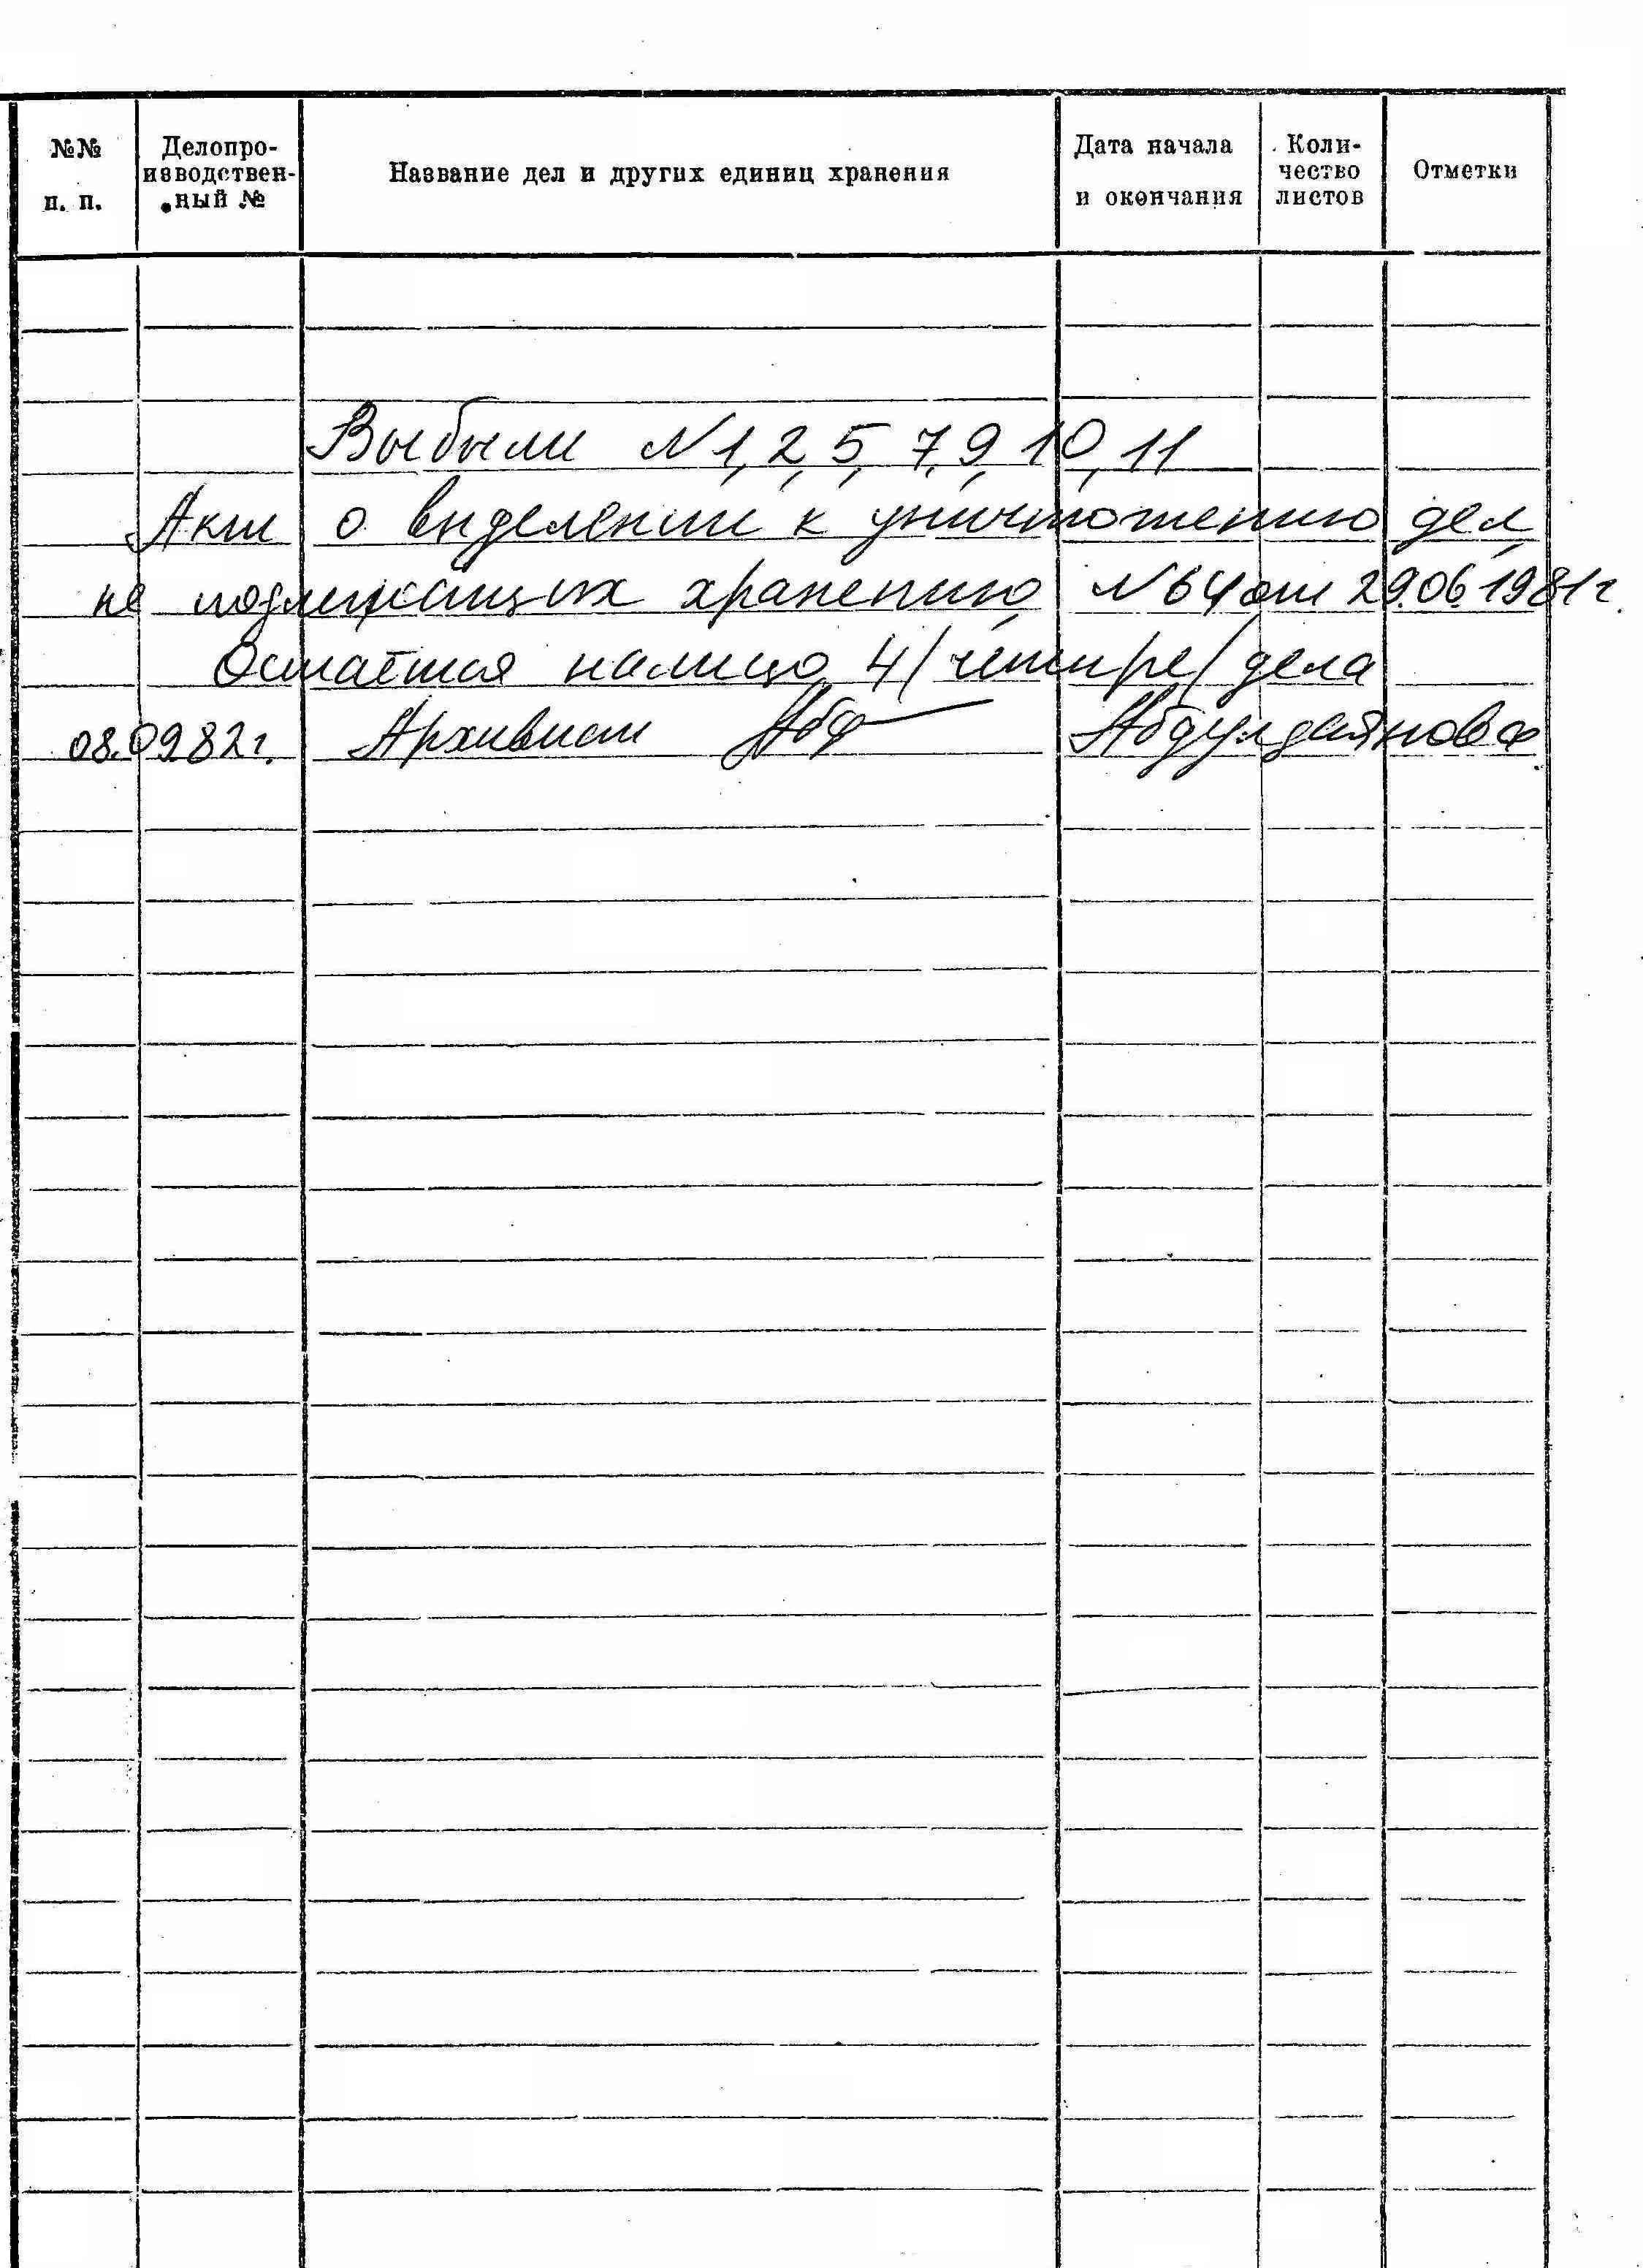 №№ п. п.
Делопро-
изводствен-
ный №
Название дел и других единиц хранения
Дата начала
и окончания
Коли-
чество
листов
Отметки
Выбыли N 1, 2, 5, 7, 9, 10, 11
Акт о выделении к уничтожению дел,
не подлежащих хранению N 64 от 29.06.1981г.
Остаётся налицо 4/четыре/дела
08.09.82г. Архивист